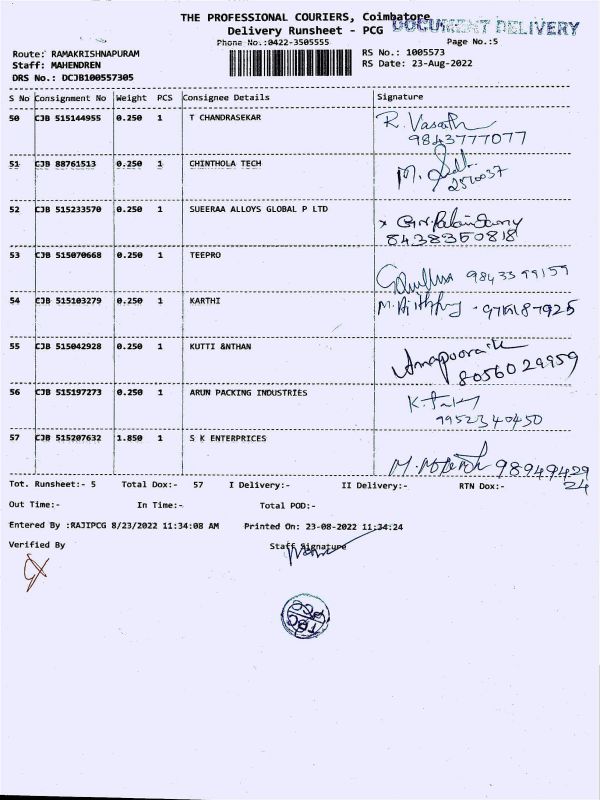 THE PROFESSIONAL COURIERS, Coimbatore
DOCUMENT DELIVERY
Delivery Runsheet - PCG
Phone No.:0422-3505555
Page No.:5
Route: RAMAKRISHNAPURAM
RS No.: 1005573
Staff: MAHENDREN
RS Date: 23-Aug-2022
DRS No.: DCJB100557305
S No Consignment No Weight PCS Consignee Details Signature
50 CJB 515144955 0.250 1 T CHANDRASEKAR
R. Vasanth
9843777077
51 CJB 88761513 0.250 1 CHINTHOLA TECH
M.
2570037
52 CJB 515233570 0.250 1 SUEERAA ALLOYS GLOBAL P LTD
8438350818
53 CJB 515070668 0.250 1 TEEPRO
98433 99159
54 CJB 515103279 0.250 1 KARTHI
55 CJB 515042928 0.250 1 KUTTI &NTHAN
8056029959
56 CJB 515197273 0.250 1 ARUN PACKING INDUSTRIES
9952340450
57 CJB 515207632 1.850 1 S K ENTERPRICES
9894942924
Tot. Runsheet:- 5 Total Dox:- 57 I Delivery:- II Delivery:- RTN Dox:-
Out Time:- In Time:- Total POD:-
Entered By :RAJIPCG 8/23/2022 11:34:08 AM Printed On: 23-08-2022 11:34:24
Verified By Staff Signature